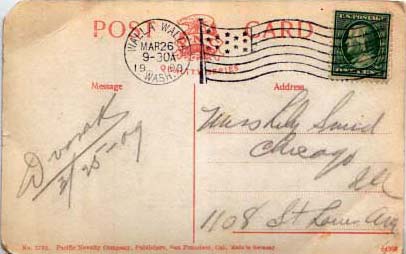 POST CARD
WALLA WALLA
MAR 26
9-30A
19 09
WASH.
SERIES
Message
Address
Dvorak
3/25-09
Miss
Chicago
Ill
1108 St Louis Ave
No. 2793. Pacific Novelty Company, Publishers, San Francisco, Cal. Made in Germany